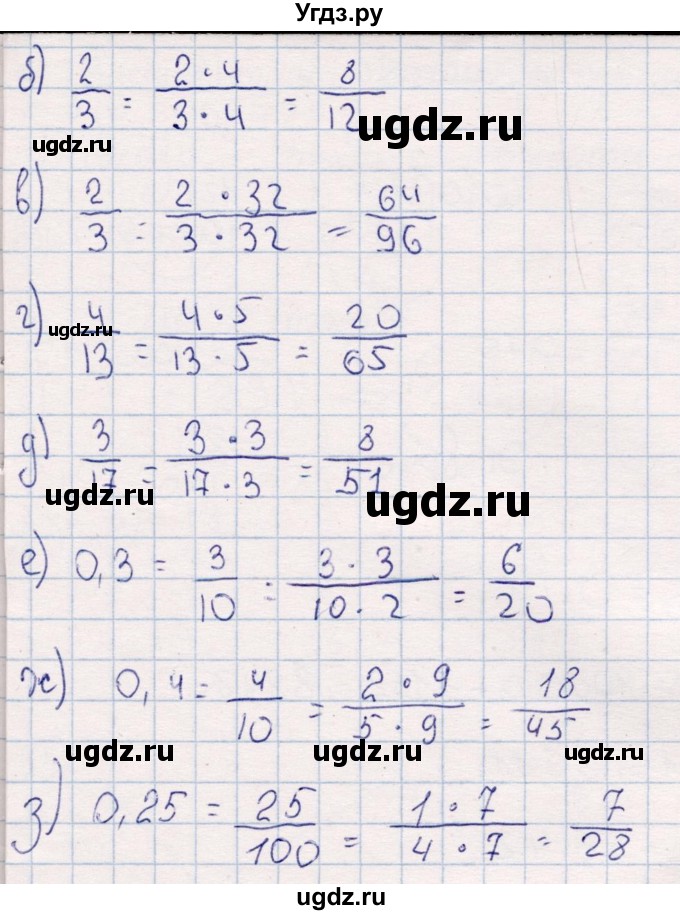 Угдз.ру
б) 2/3 = 2·4/3·4 = 8/12
ugdz.ru ugdz.ru
в) 2/3 = 2·32/3·32 = 64/96
г) 4/13 = 4·5/13·5 = 20/65
ugdz.ru
д) 3/17 = 3·3/17·3 = 8/51
ugdz.ru ugdz.ru
е) 0,3 = 3/10 = 3·3/10·2 = 6/20
ж) 0,4 = 4/10 = 2·9/5·9 = 18/45
ugdz.ru ugdz.ru ugdz.ru
з) 0,25 = 25/100 = 1·7/4·7 = 7/28
ugdz.ru